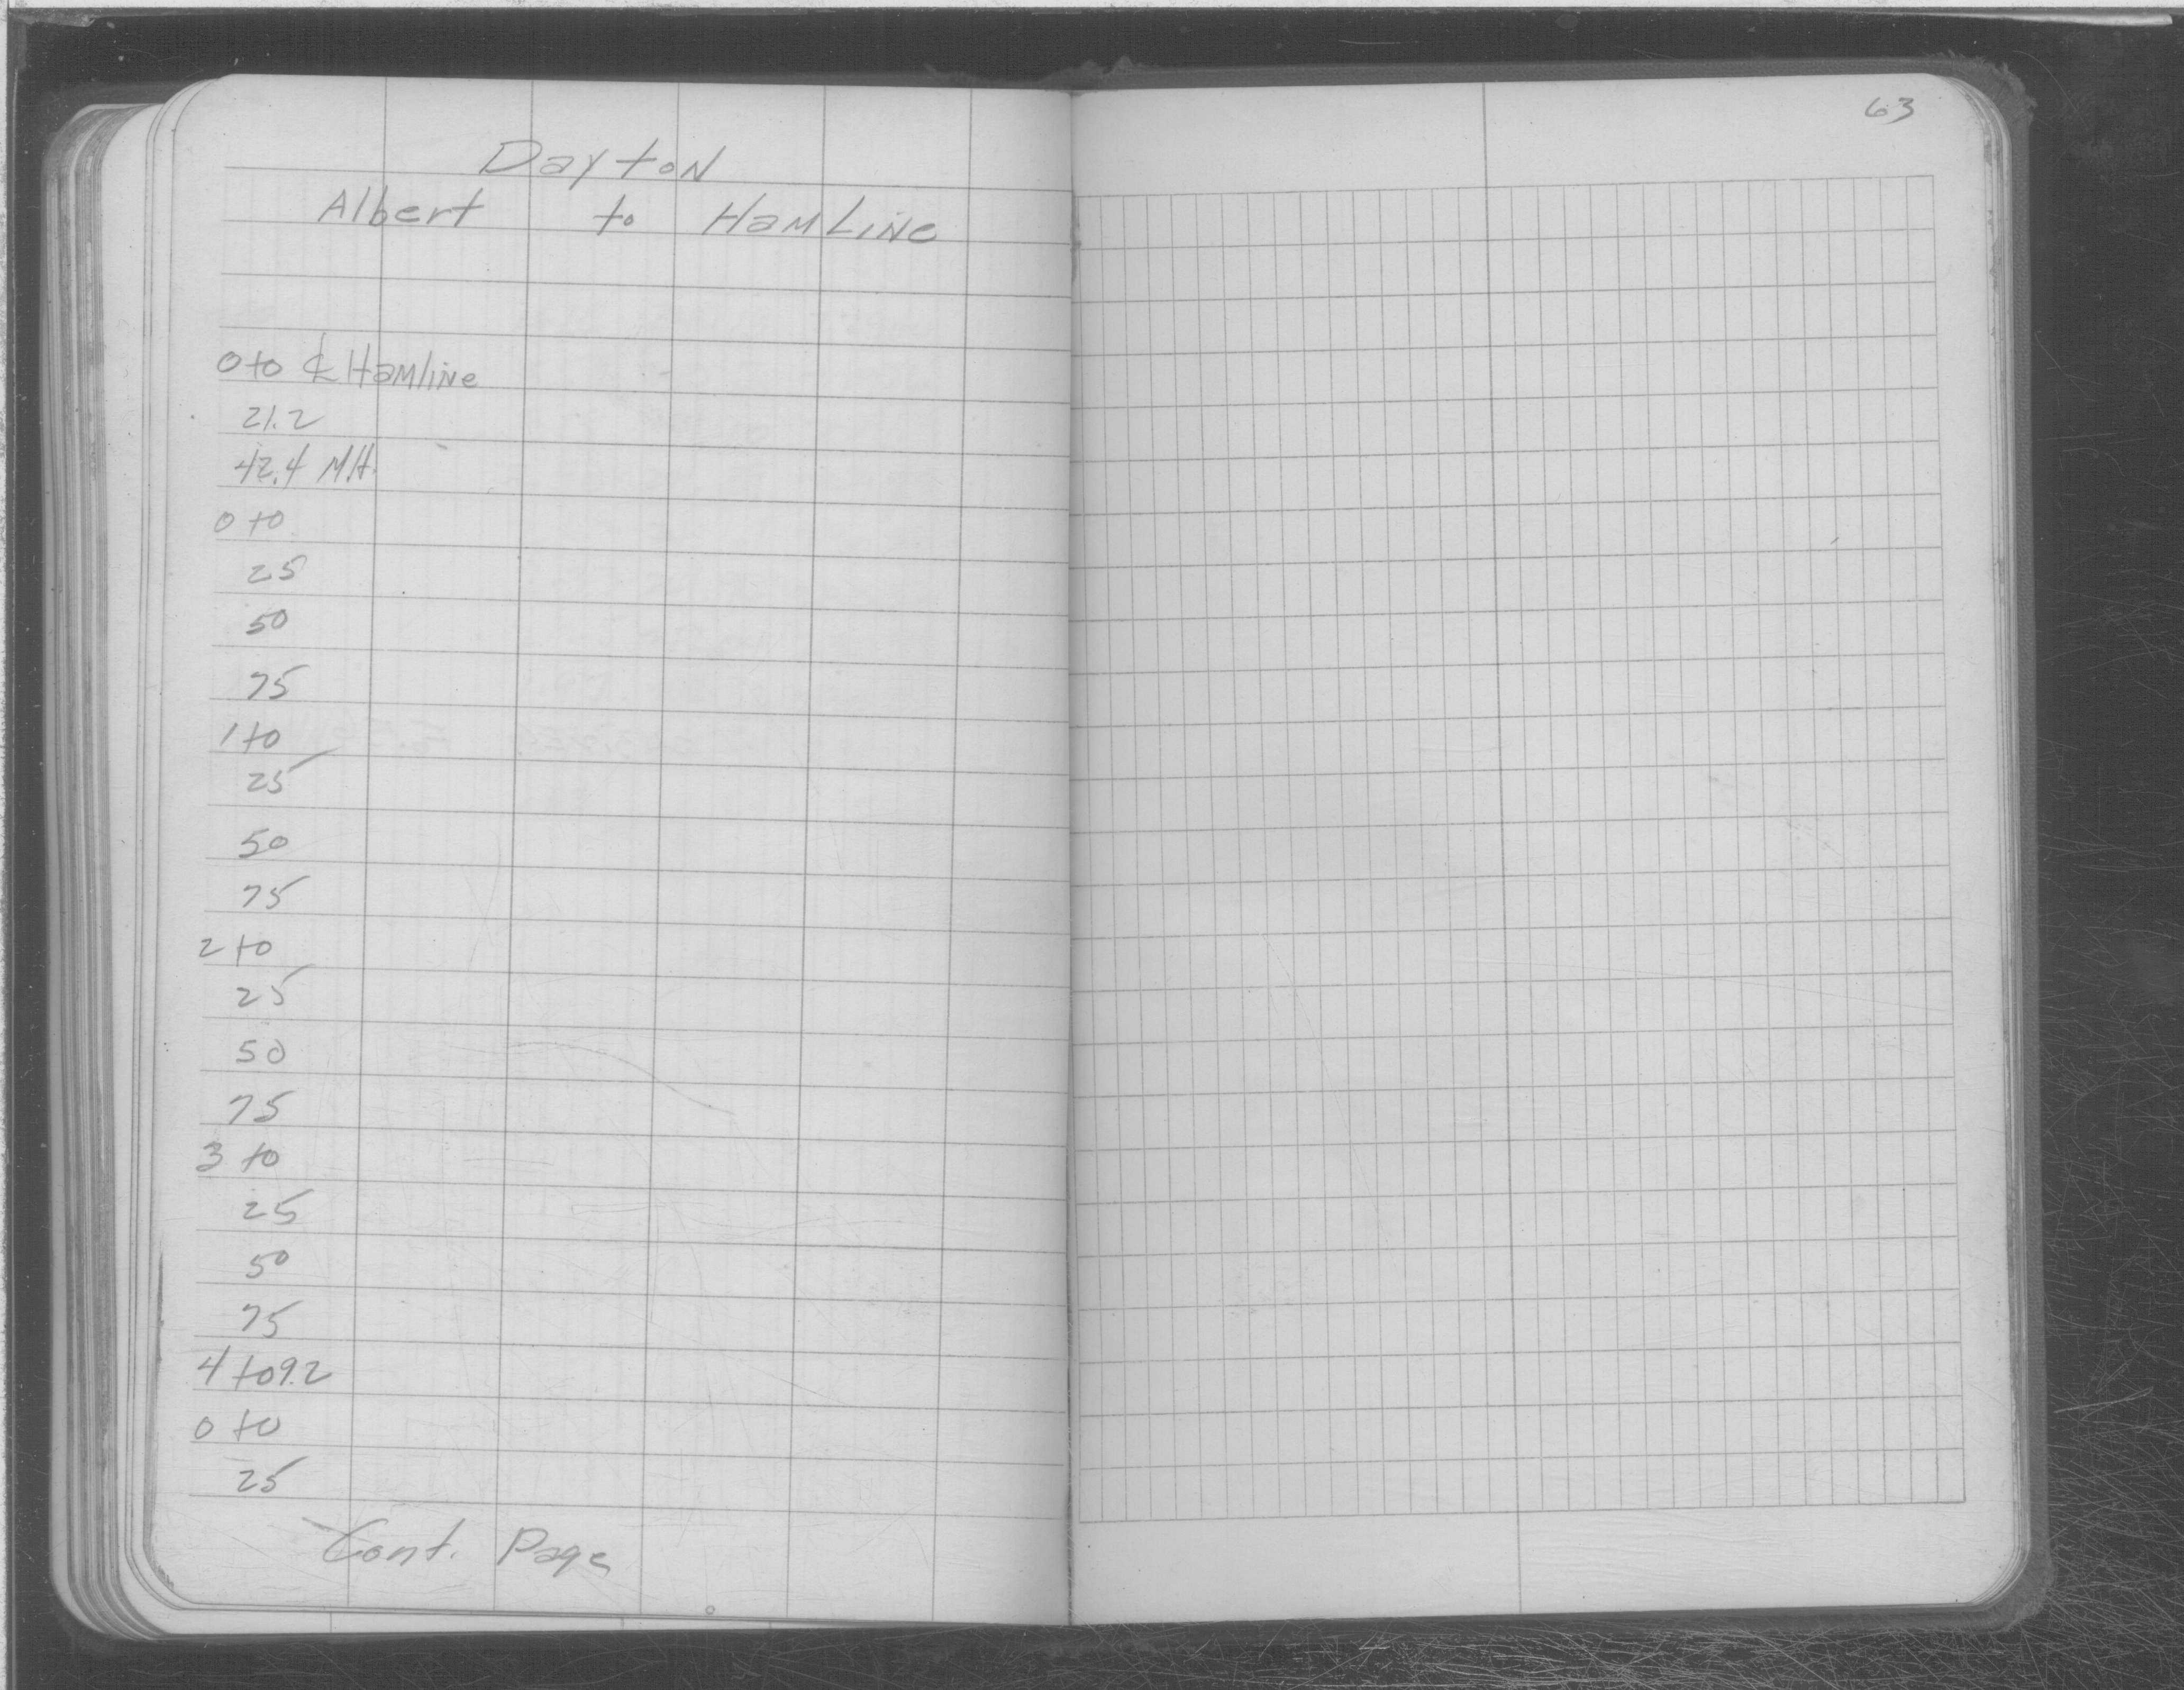 63
Dayton
Albert to Hamline
0+0 ℄ Hamline
21.2
42.4 M.H.
0+0
25
50
75
1+0
25
50
75
2+0
25
50
75
3+0
25
50
75
4+09.2
0+0
25
Cont. Page